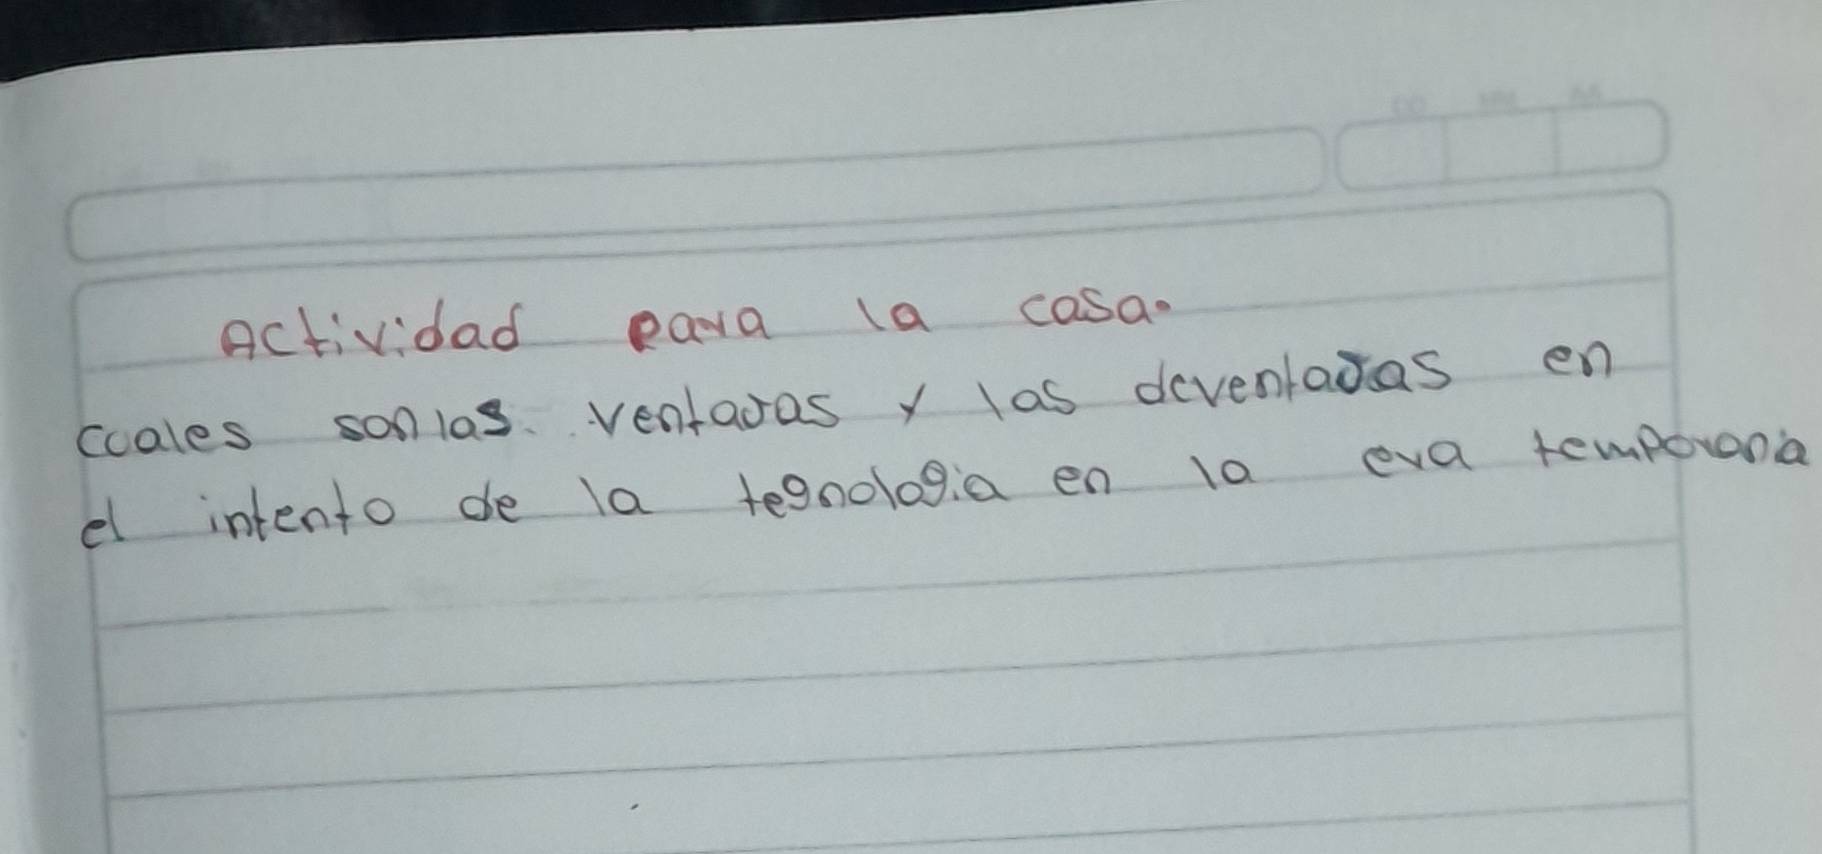 Actividad para la casa.
cuales son las ventajas y las deventajas en
el intento de la tegnologia en la era temporana